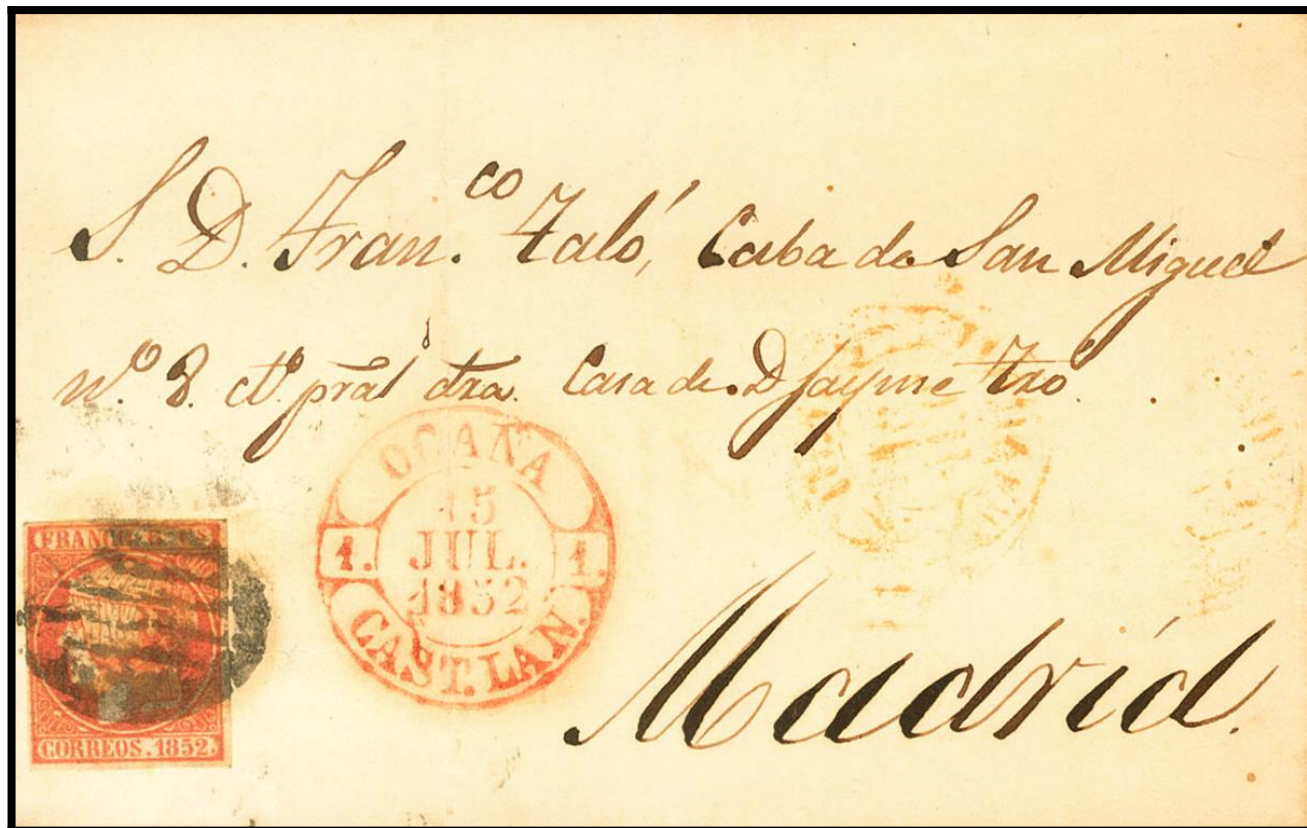 S. D. Fran.co Taló, Caba de San Miguel
nº 8. cto. pral dra. Casa de D Jayme Tro.
OCAÑA
15
JUL.
1852
1. 1.
CAST. LAN.
Madrid.
CORREOS. 1852.